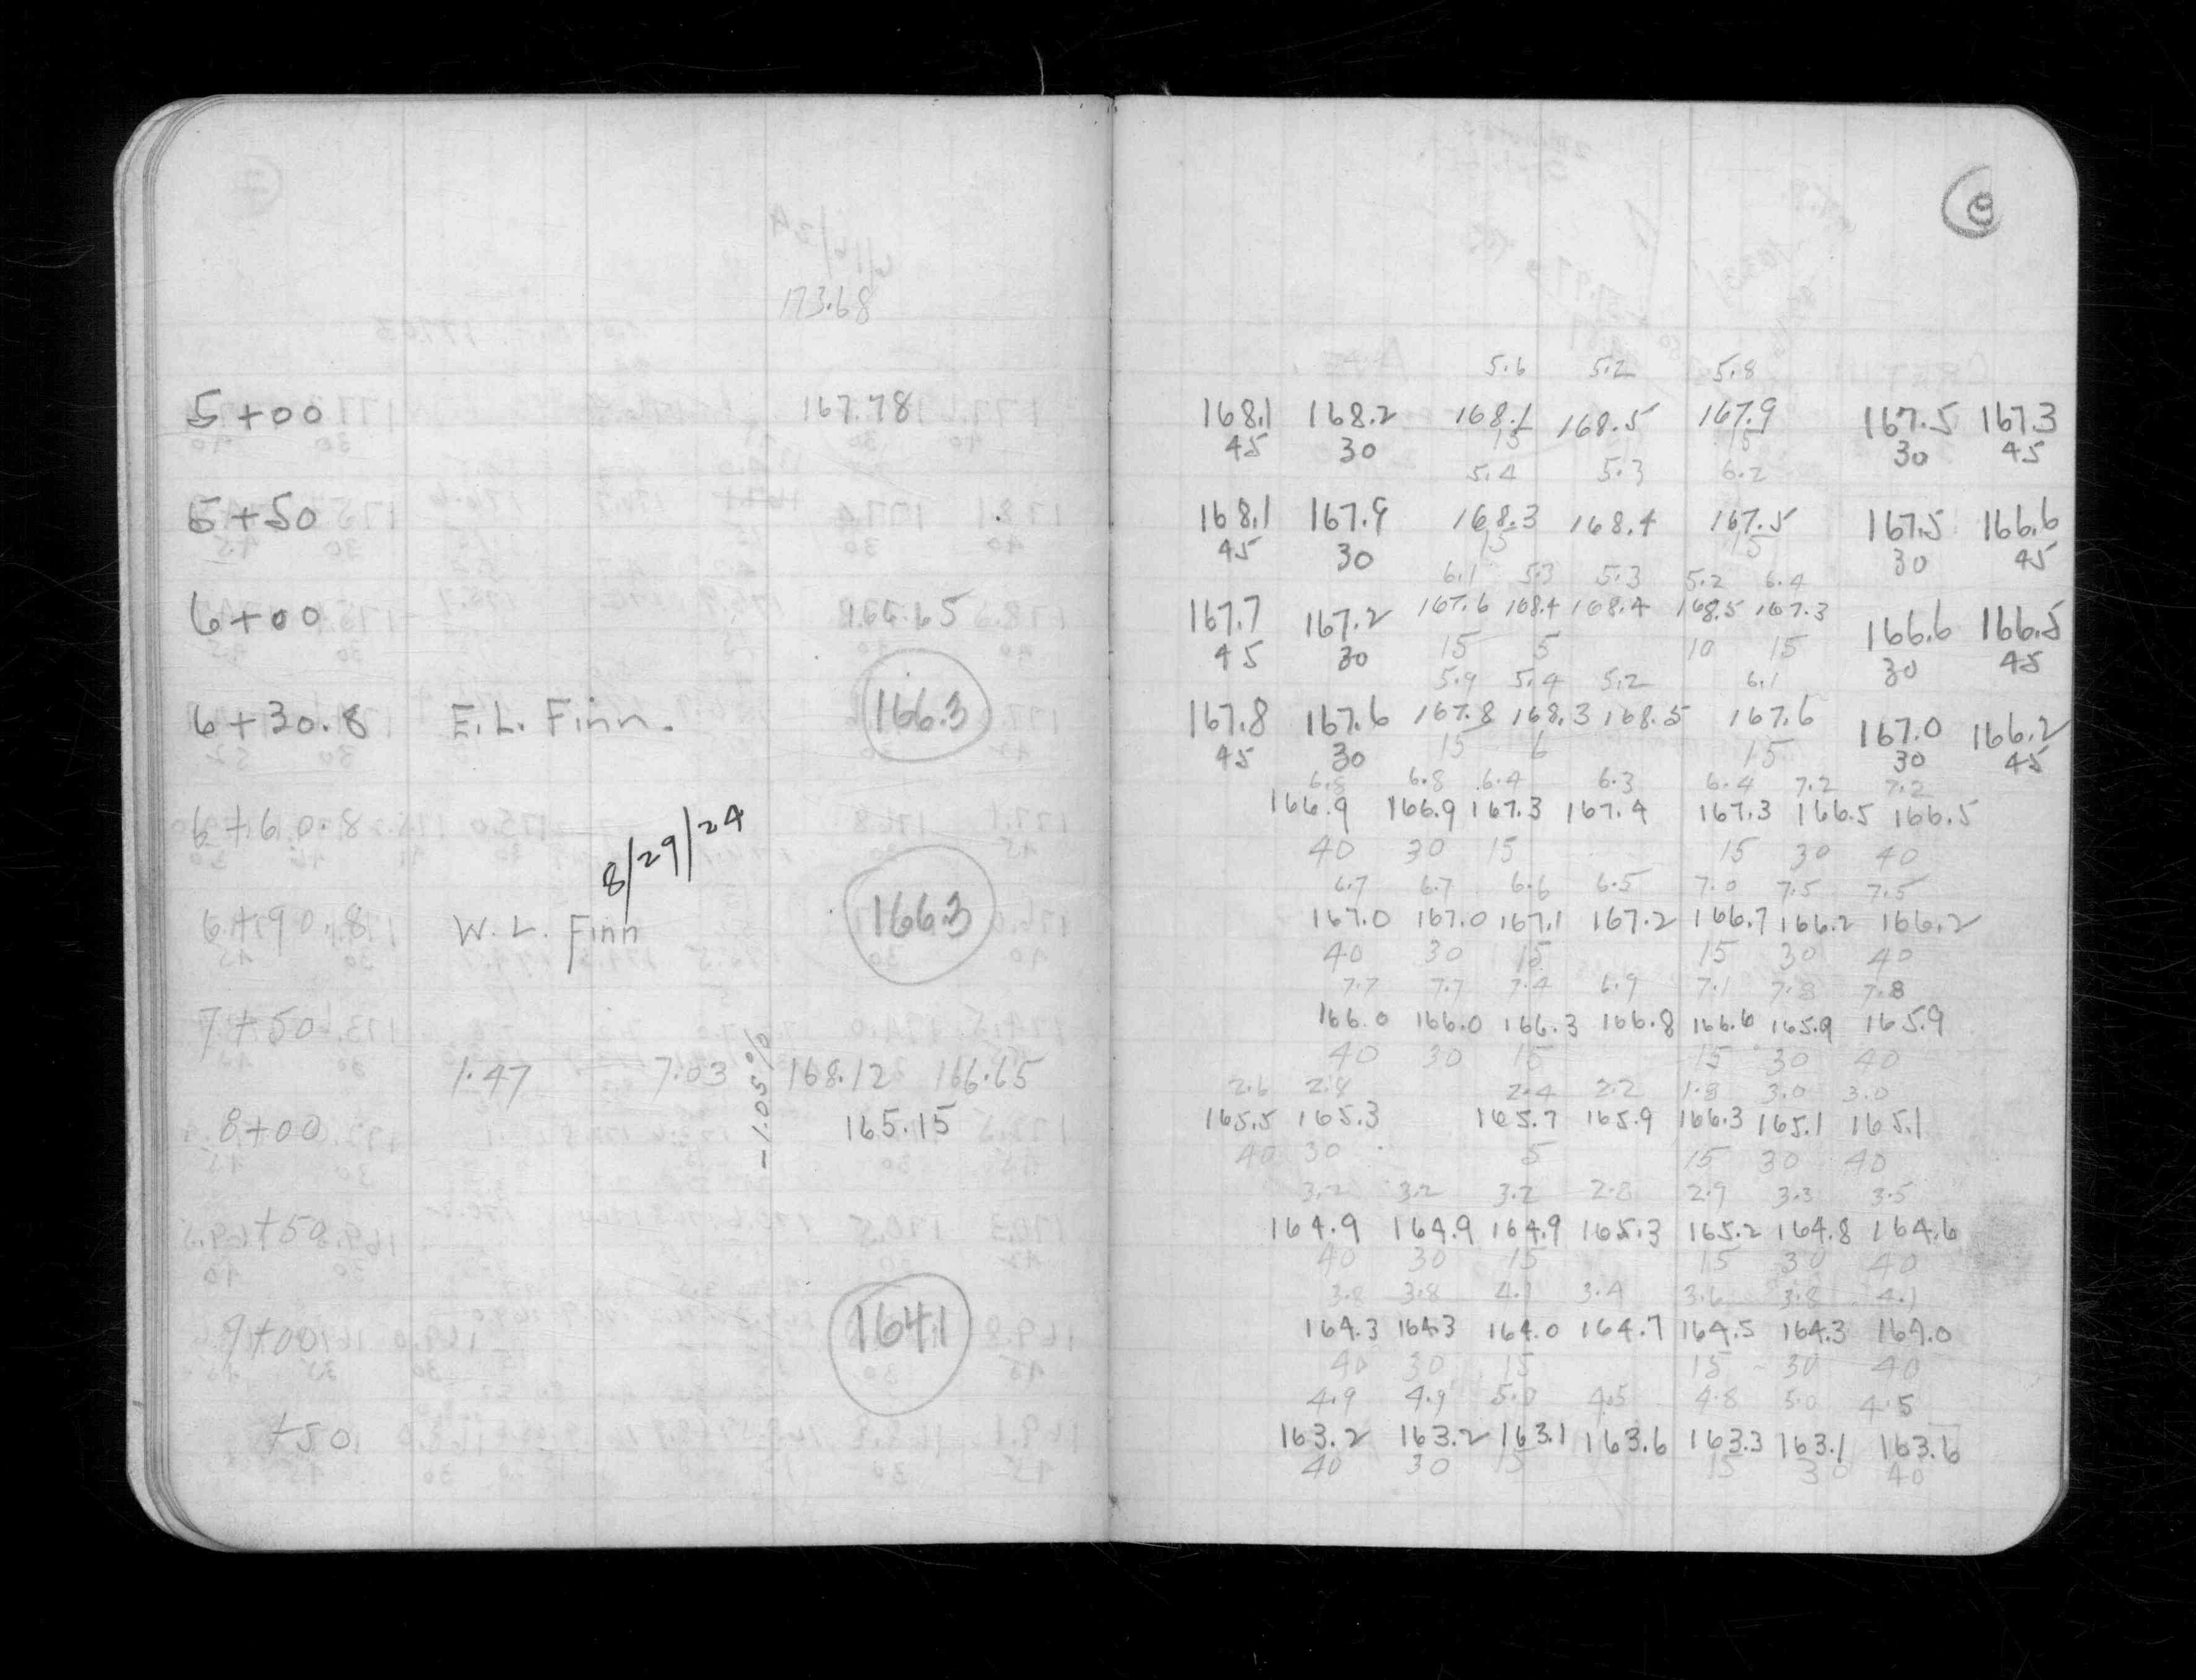 173.68
5+00 167.78
5+50
6+00 166.65
6+30.8 E. L. Finn. 166.3
6+60.8
8/29/24
6+90.8 W. L. Finn 166.3
7+50
1.47 7.03 168.12 166.65
-1.05%
8+00 165.15
+50
9+00 164.1
+50
8
5.6 5.2 5.8
168.1 168.2 168.1 168.5 167.9 167.5 167.3
45 30 15 15 30 45
5.4 5.3 6.2
168.1 167.9 168.3 168.4 167.5 167.5 166.6
45 30 15 15 30 45
6.1 5.3 5.3 5.2 6.4
167.7 167.2 167.6 168.4 168.4 168.5 167.3 166.6 166.5
45 30 15 5 10 15 30 45
5.9 5.4 5.2 6.1
167.8 167.6 167.8 168.3 168.5 167.6 167.0 166.2
45 30 15 6 15 30 45
6.8 6.8 6.4 6.3 6.4 7.2 7.2
166.9 166.9 167.3 167.4 167.3 166.5 166.5
40 30 15 15 30 40
6.7 6.7 6.6 6.5 7.0 7.5 7.5
167.0 167.0 167.1 167.2 166.7 166.2 166.2
40 30 15 15 30 40
7.7 7.7 7.4 6.9 7.1 7.8 7.8
166.0 166.0 166.3 166.8 166.6 165.9 165.9
40 30 15 15 30 40
2.6 2.8 2.4 2.2 1.8 3.0 3.0
165.5 165.3 165.7 165.9 166.3 165.1 165.1
40 30 5 15 30 40
3.2 3.2 3.2 2.8 2.9 3.3 3.5
164.9 164.9 164.9 165.3 165.2 164.8 164.6
40 30 15 15 30 40
3.8 3.8 4.1 3.4 3.6 3.8 4.1
164.3 164.3 164.0 164.7 164.5 164.3 164.0
40 30 15 15 30 40
4.9 4.9 5.0 4.5 4.8 5.0 4.5
163.2 163.2 163.1 163.6 163.3 163.1 163.6
40 30 15 15 30 40